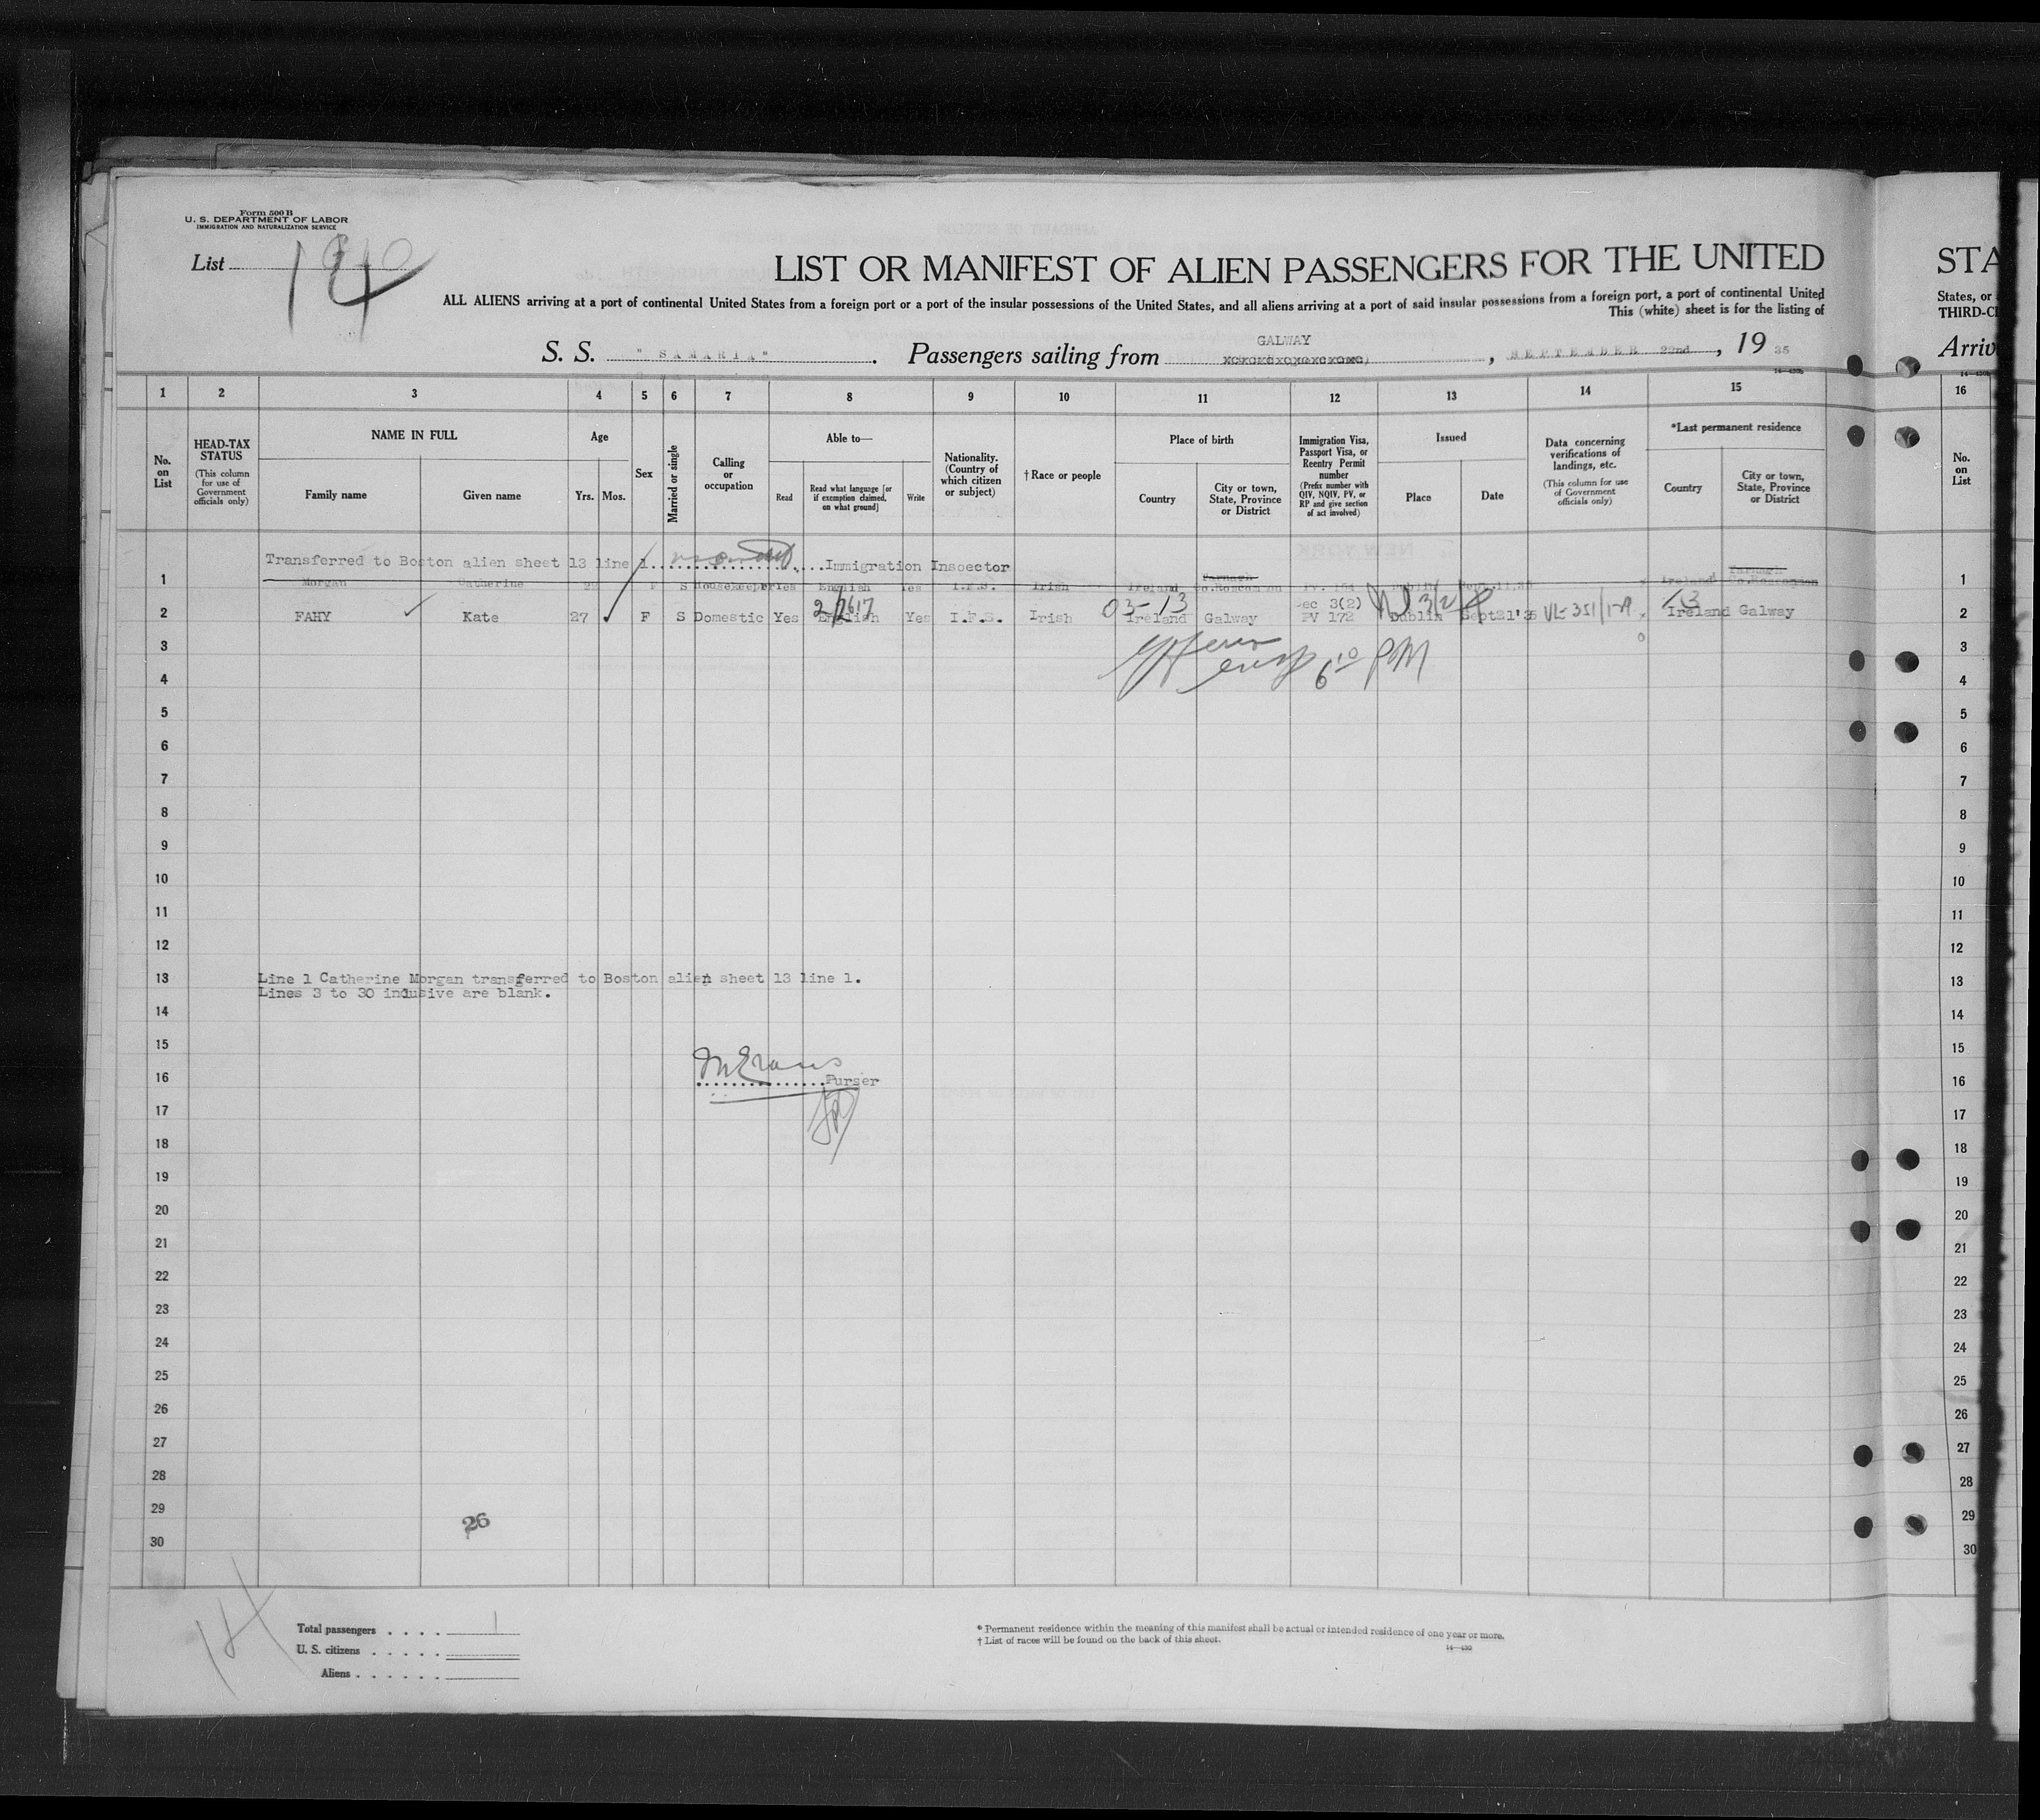 Form 500 B
U. S. DEPARTMENT OF LABOR
IMMIGRATION AND NATURALIZATION SERVICE
List
14
LIST OR MANIFEST OF ALIEN PASSENGERS FOR THE UNITED
ALL ALIENS arriving at a port of continental United States from a foreign port or a port of the insular possessions of the United States, and all aliens arriving at a port of said insular possessions from a foreign port, a port of continental United
This (white) sheet is for the listing of
S. S. "SAMARIA". Passengers sailing from GALWAY, SEPTEMBER 22nd, 19 35
1 2 3 4 5 6 7 8 9 10 11 12 13 14 15
No. on List
HEAD-TAX STATUS
(This column for use of Government officials only)
NAME IN FULL
Family name
Given name
Age
Yrs.
Mos.
Sex
Married or single
Calling or occupation
Able to—
Read
Read what language [or if exemption claimed, on what ground]
Write
Nationality. (Country of which citizen or subject)
† Race or people
Place of birth
Country
City or town, State, Province or District
Immigration Visa, Passport Visa, or Reentry Permit number
(Prefix number with QIV, NQIV, PV, or RP and give section of act involved)
Issued
Place
Date
Data concerning verifications of landings, etc.
(This column for use of Government officials only)
*Last permanent residence
Country
City or town, State, Province or District
Transferred to Boston alien sheet 13 line 1 Immigration Insoector
1 Morgan Catherine F S Housekeeper Yes English Yes I.F.S. Irish Ireland Co.Roscommon Dublin Ireland Co.Roscommon
03-13
Sec 3(2)
2 FAHY Kate 27 F S Domestic Yes English Yes I.F.S. Irish Ireland Galway PV 172 Dublin Sept21'35 Ireland Galway
3
6 10 PM
4
5
6
7
8
9
10
11
12
13 Line 1 Catherine Morgan transferred to Boston alien sheet 13 line 1.
Lines 3 to 30 inclusive are blank.
14
15
M Evans
16 Purser
17
18
19
20
21
22
23
24
25
26
27
28
29
26
30
14
Total passengers . . . . 1
U. S. citizens . . . . .
Aliens . . . . . .
* Permanent residence within the meaning of this manifest shall be actual or intended residence of one year or more.
† List of races will be found on the back of this sheet.
14—430
STA
States, or
THIRD-CL
Arriv
16
No. on List
1
2
3
4
5
6
7
8
9
10
11
12
13
14
15
16
17
18
19
20
21
22
23
24
25
26
27
28
29
30